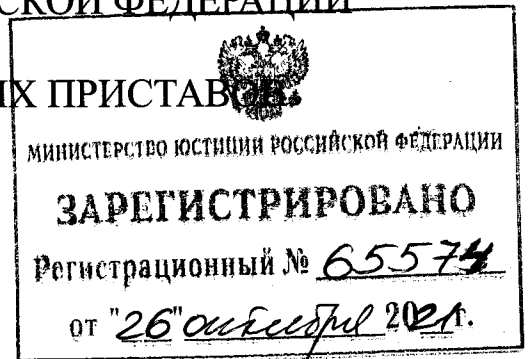 СКОЙ ФЕДЕРАЦИИ
Х ПРИСТАВОВ
МИНИСТЕРСТВО ЮСТИЦИИ РОССИЙСКОЙ ФЕДЕРАЦИИ
ЗАРЕГИСТРИРОВАНО
Регистрационный № 65574
от "26" октября 2021г.